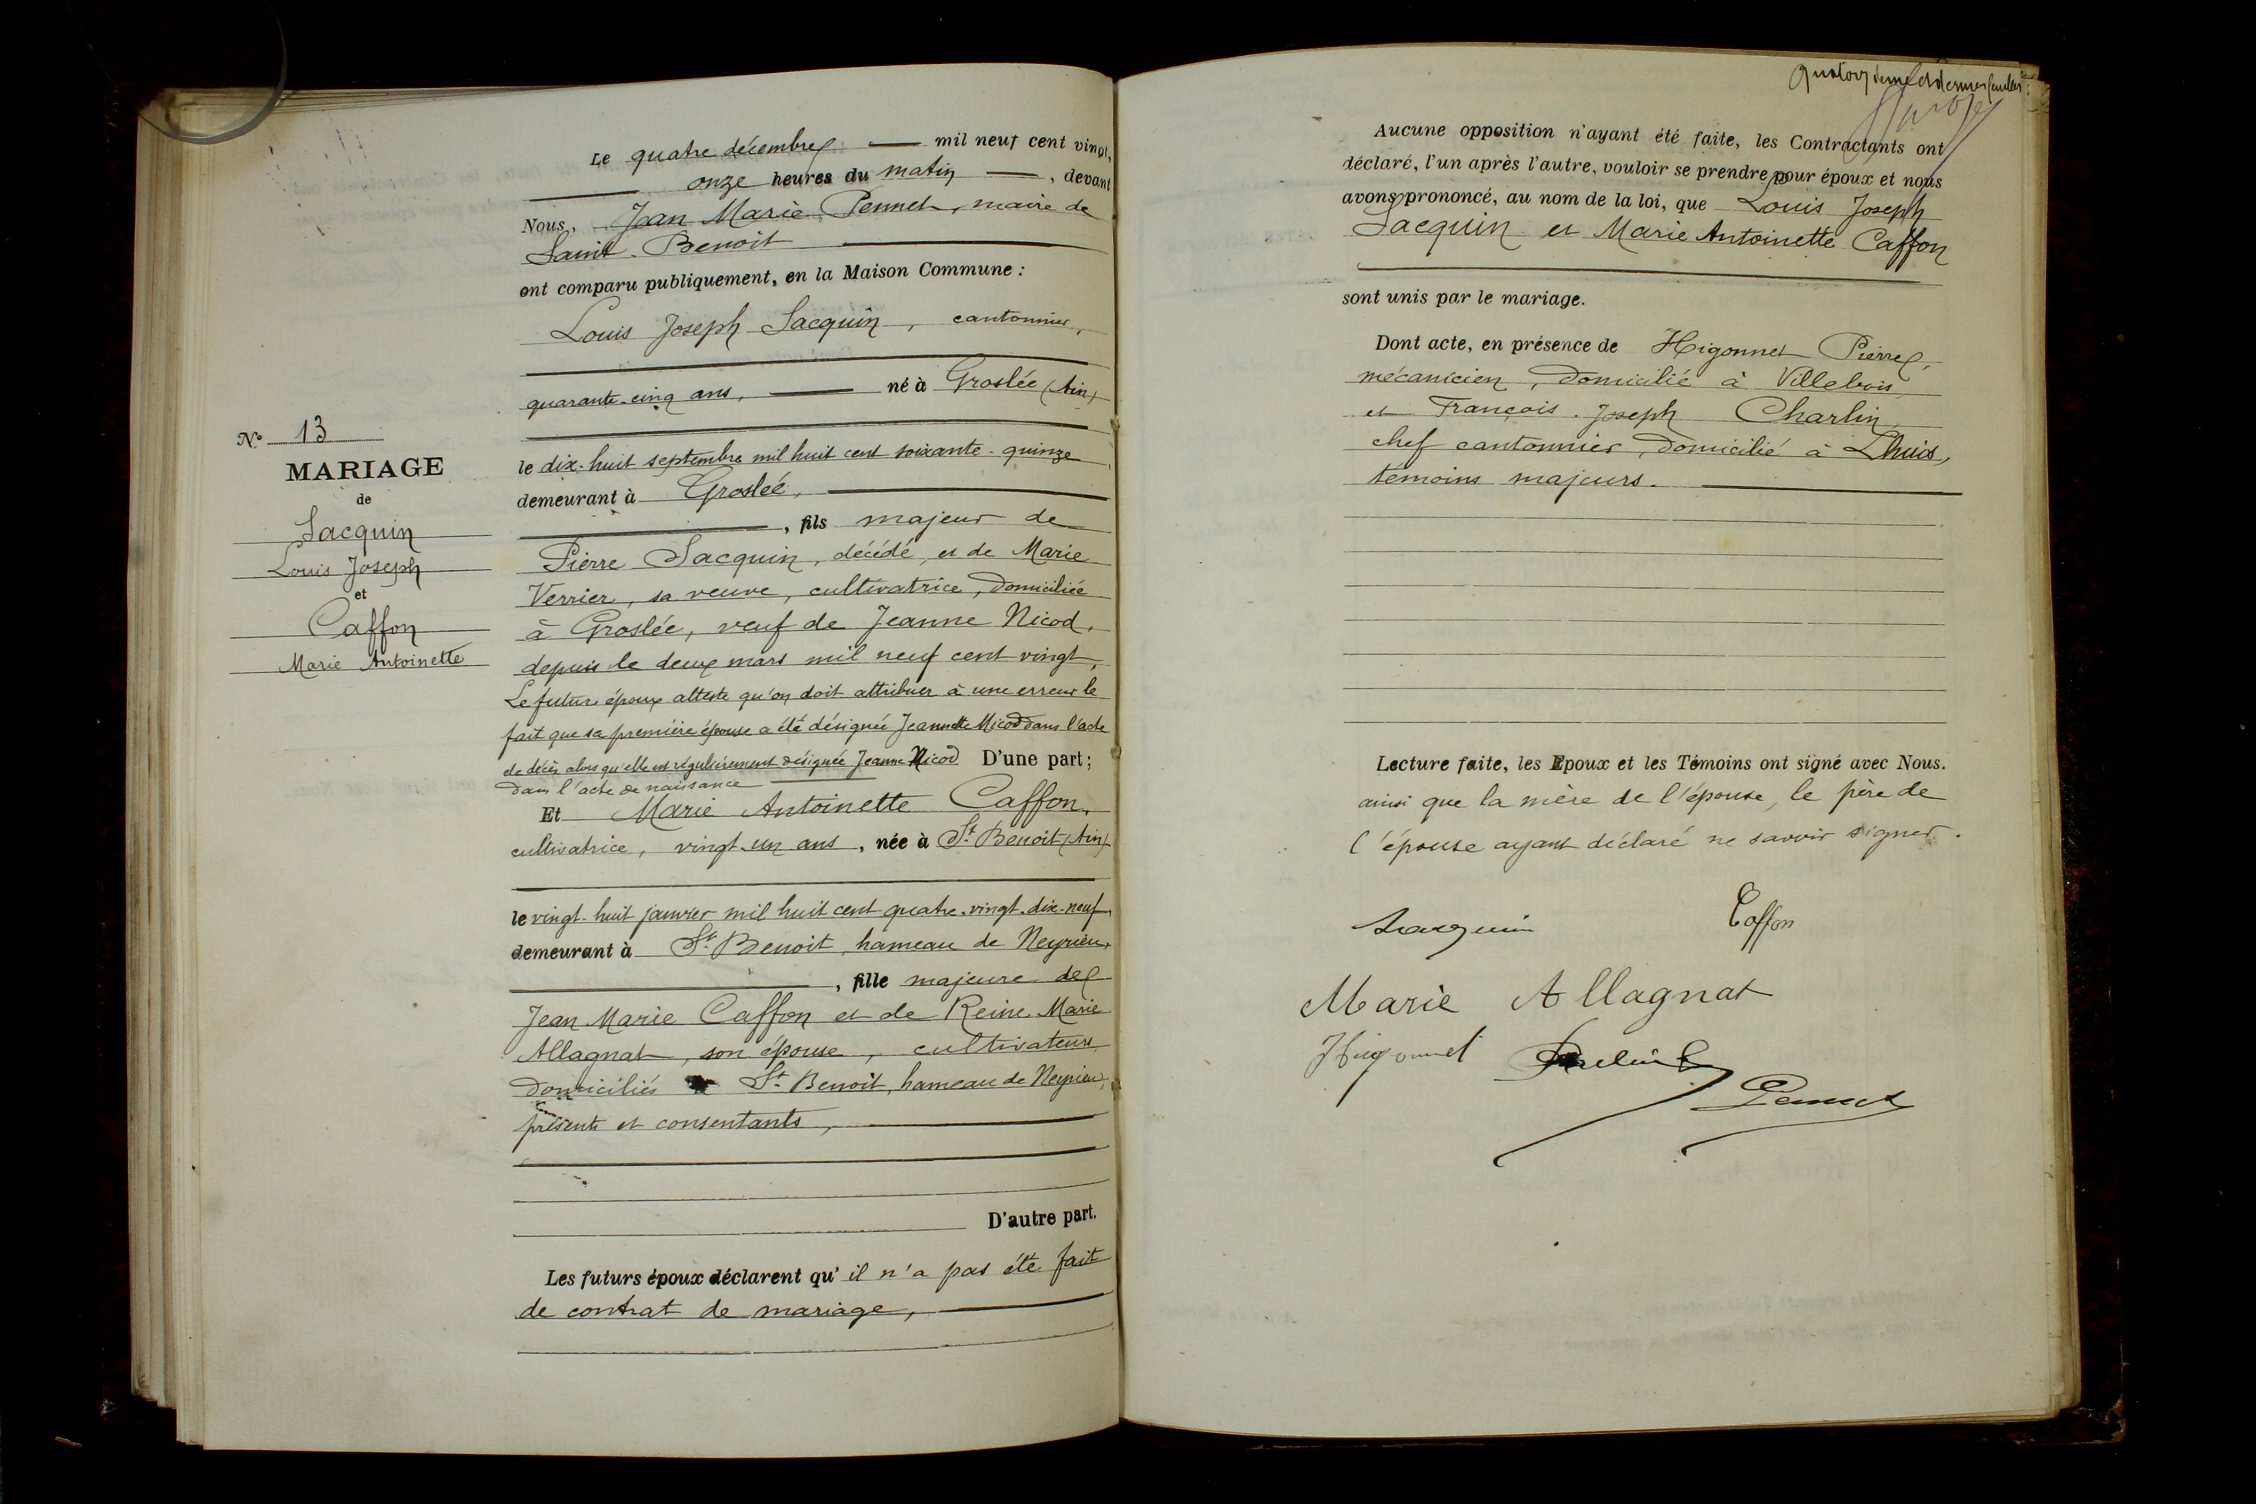 N° 13
MARIAGE
de
Sacquin
Louis Joseph
et
Caffon
Marie Antoinette
Le quatre décembre mil neuf cent vingt,
onze heures du matin, devant
Nous, Jean Marie Pennet, maire de
Saint-Benoit
ont comparu publiquement, en la Maison Commune :
Louis Joseph Sacquin, cantonnier,
quarante-cinq ans, né à Groslée (Ain)
le dix-huit septembre mil huit cent soixante-quinze
demeurant à Groslée,
, fils majeur de
Pierre Sacquin, décédé, et de Marie
Verrier, sa veuve, cultivatrice, domiciliée
à Groslée, veuf de Jeanne Nicod,
depuis le deux mars mil neuf cent vingt,
Le futur époux atteste qu'on doit attribuer à une erreur le
fait que sa première épouse a été désignée Jeannette Micod dans l'acte
de décès alors qu'elle est régulièrement désignée Jeanne Nicod D'une part ;
dans l'acte de naissance
Et Marie Antoinette Caffon,
cultivatrice, vingt-un ans, née à St. Benoit (Ain)
le vingt-huit janvier mil huit cent quatre-vingt-dix-neuf,
demeurant à St. Benoit, hameau de Neyrieu,
, fille majeure de
Jean Marie Caffon et de Reine Marie
Allagnat, son épouse, cultivateurs
domiciliés St. Benoit, hameau de Neyrieu,
présents et consentants,
D'autre part.
Les futurs époux déclarent qu'il n'a pas été fait
de contrat de mariage,
Aucune opposition n'ayant été faite, les Contractants ont
déclaré, l'un après l'autre, vouloir se prendre pour époux et nous
avons prononcé, au nom de la loi, que Louis Joseph
Sacquin et Marie Antoinette Caffon
sont unis par le mariage.
Dont acte, en présence de Higonnet Pierre,
mécanicien, domicilié à Villebois
et François-Joseph Charlin,
chef cantonnier, domicilié à Lhuis,
témoins majeurs.
Lecture faite, les Epoux et les Témoins ont signé avec Nous.
ainsi que la mère de l'épouse, le père de
l'épouse ayant déclaré ne savoir signer.
Sacquin Caffon
Marie Allagnat
Higonnet
Pennet